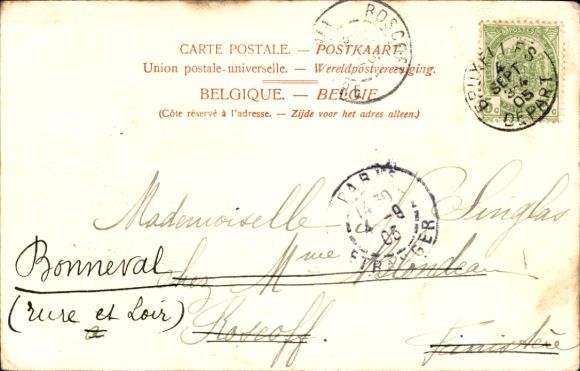 CARTE POSTALE. — POSTKAART.
Union postale-universelle. — Wereldpostvereeniging.
BELGIQUE. — BELGIE
(Côté réservé à l'adresse. — Zijde voor het adres alleen.)
ROSCOFF
BRUXELLES
SEPT
05
DEPART
PARIS
4 -9
05
ETRANGER
Mademoiselle Singlas
Bonneval
chez Mme
(Eure et Loir)
Roscoff Finistère